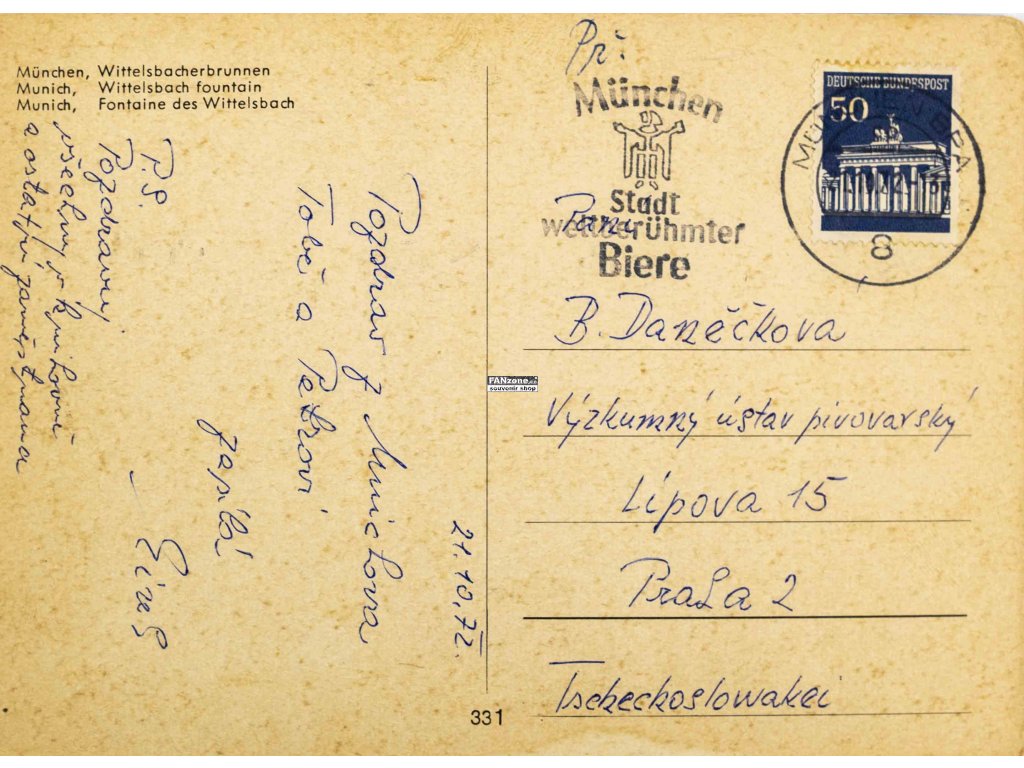 München, Wittelsbacherbrunnen
Munich, Wittelsbach fountain
Munich, Fontaine des Wittelsbach
21.10.72.
Pozdrav z Mnichova
Tobě a Petrovi
zasílá
P.S.
Pozdravuj
všechny v knihovně
a ostatní
331
Př.
München
Stadt
weltberühmter
Biere
DEUTSCHE BUNDESPOST
50
8
Paní
B. Daněčkova
Výzkumný ústav pivovarský
Lípova 15
Praha 2
Tschechoslowakei
FANzone.cz
souvenir shop